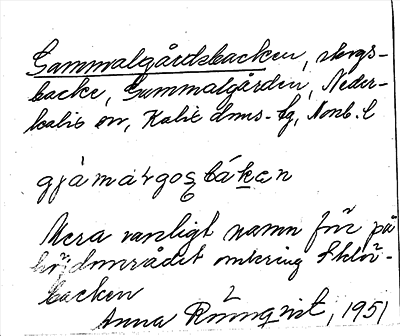 Gammalgårdsbacken, skogs-
backe, Gammalgården, Neder-
kalix sn, Kalix dms-tg, Nonb. l
gjàmárgoṣbáken
Mera vanligt namn för på
höjdområdet omkring
backen
Anna Rönnqvist, 1951